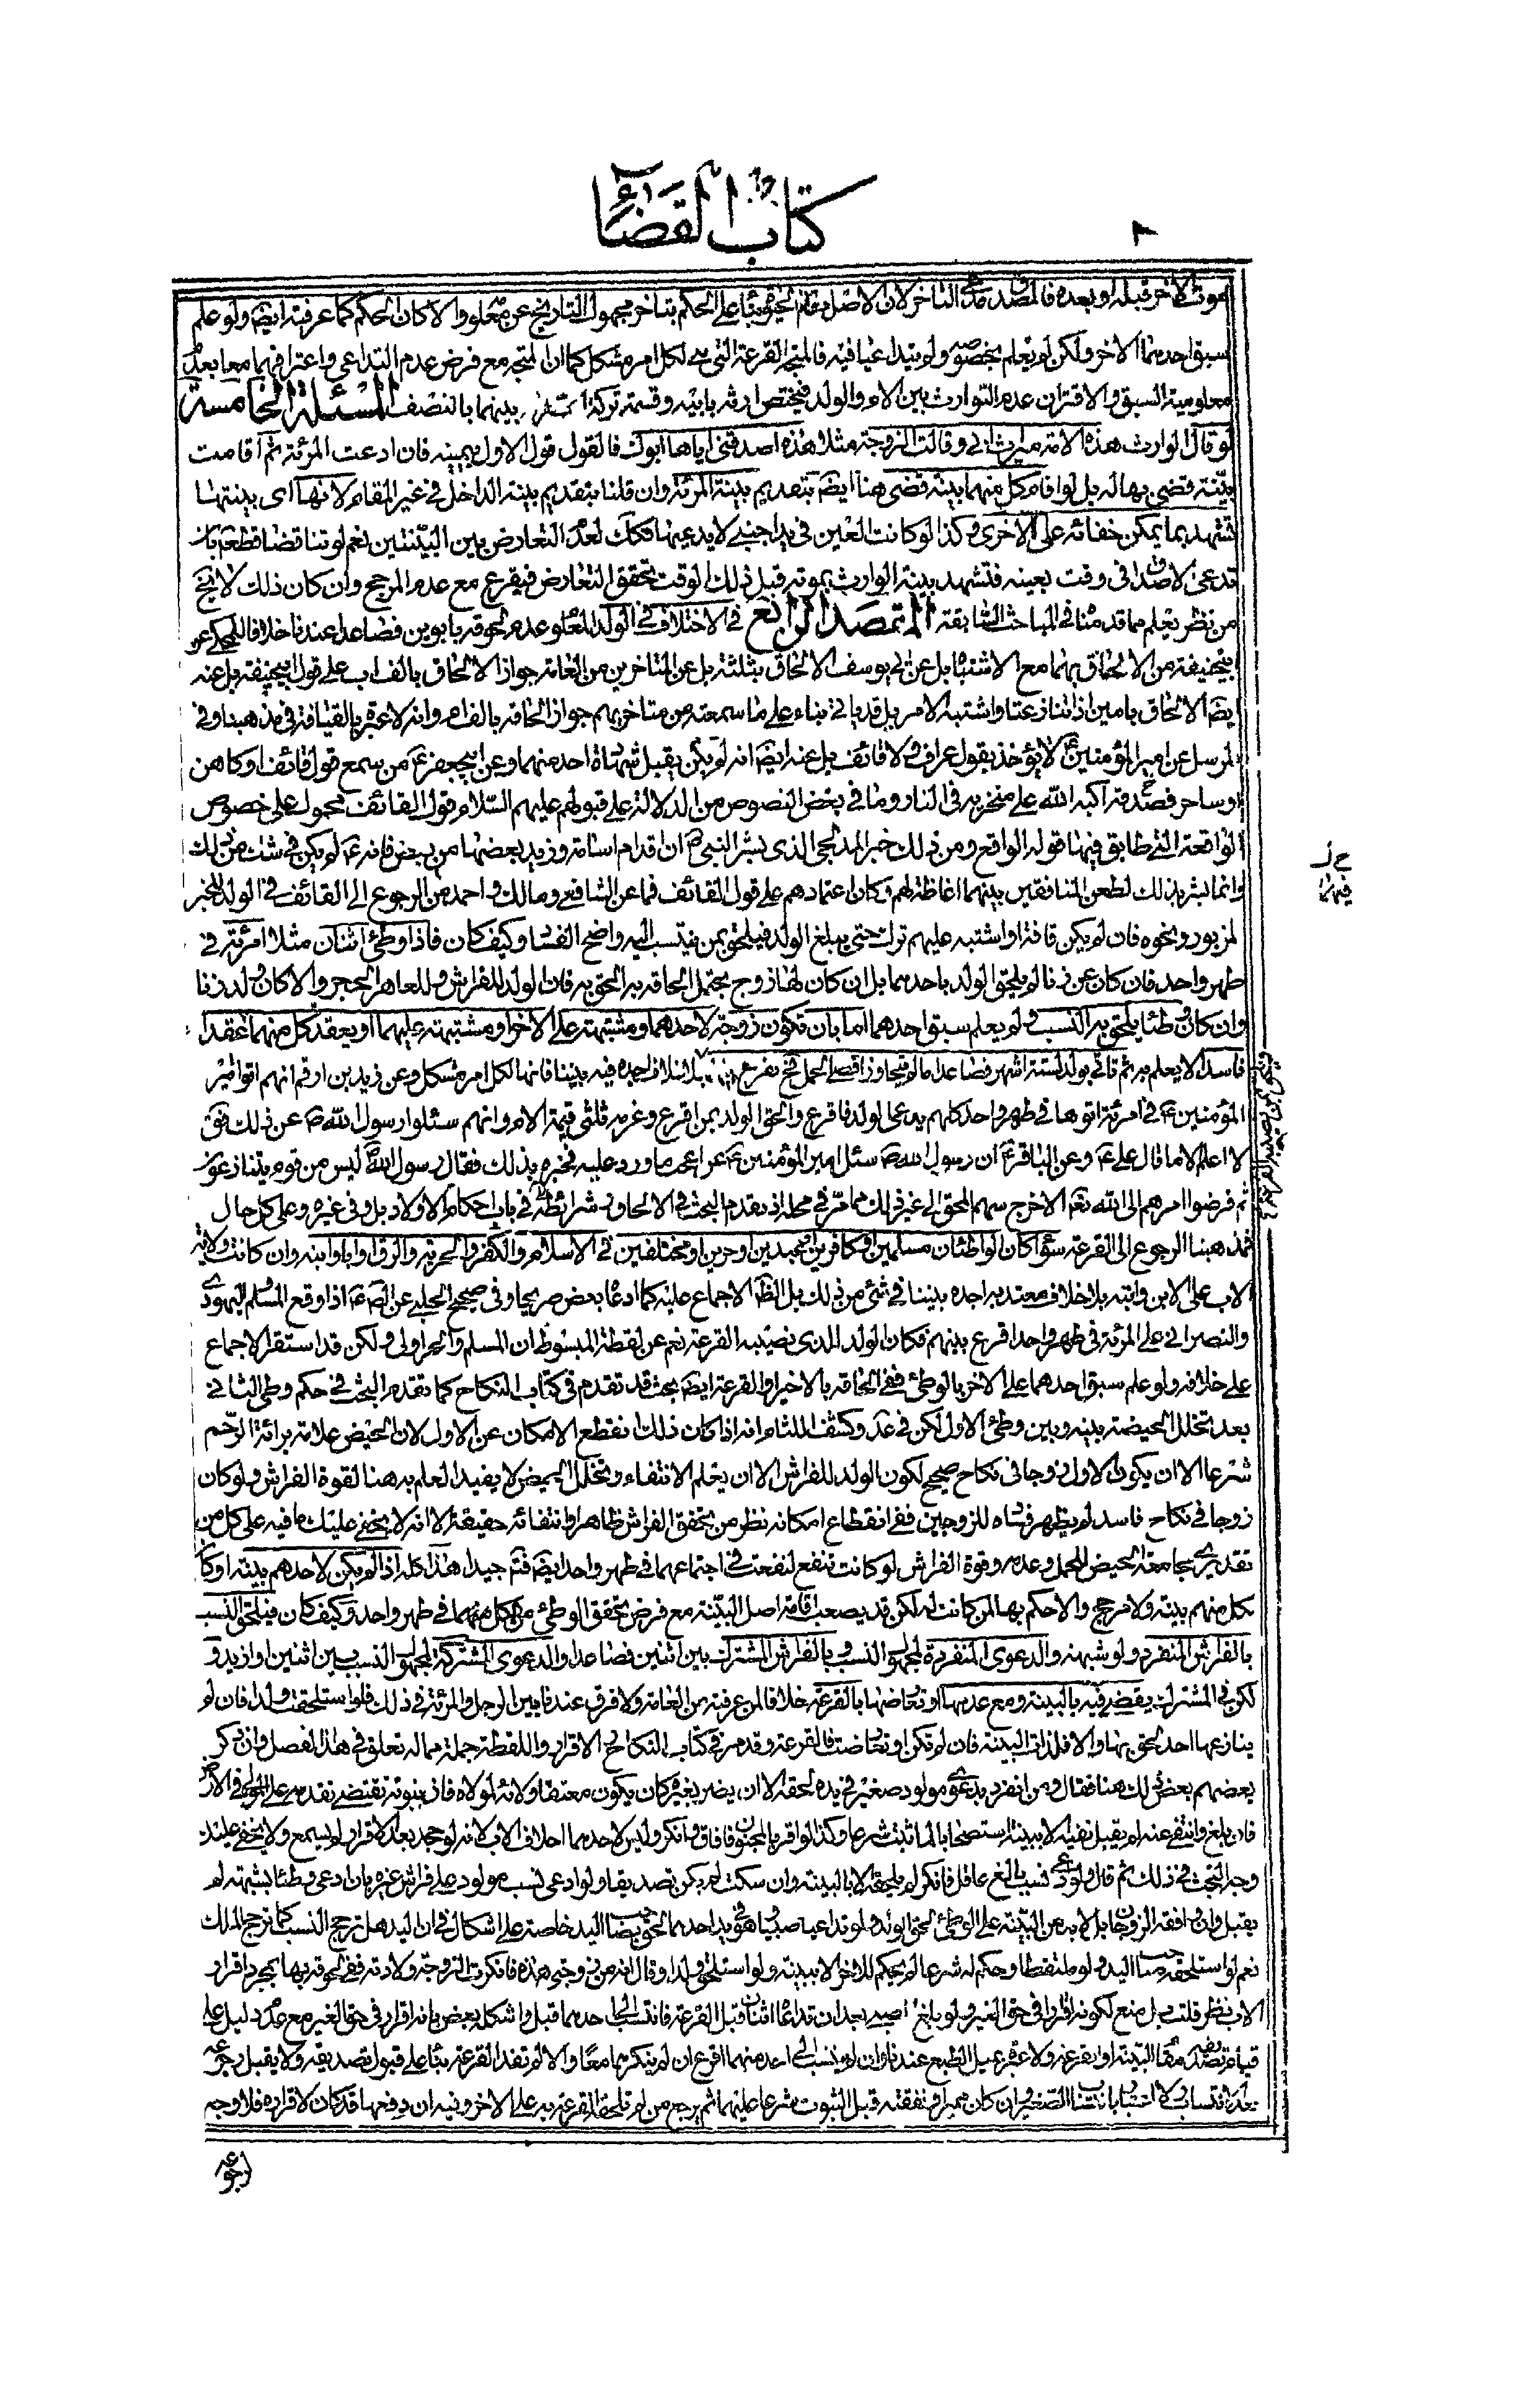 كتاب القضاء
موت الاخر قبله او بعده فالمصدق مدعى التأخر لان الاصل بقاء الحيوة بناء على الحكم بتاخر مجهول التاريخ عن معلومه والا كان الحكم كما عرفته ايضا ولو علم
سبق احدهما الاخر ولكن لم يعلم بخصوصه ولو بتداعيا فيه فالمتجه القرعة التي هي لكل امر مشكل كما ان المتجه مع فرض عدم التداعي واعترافهما معا بعدم
معلومية السبق والاقتران عدم التوارث بين الام والولد فيختص ارثه بابيه وقسمة تركة بينهما بالنصف المسئلة الخامسة
لو قال الوارث هذه الامة ميراث ابي وقالت الزوجة مثلا هذه اصدقني اياها ابوك فالقول قول الاول بيمينه فان ادعت المرئة ثم اقامت
بينة قضى بها له بل لو اقام كل منهما بينة قضى هنا ايضا بتقديم بينة المرئة وان قلنا بتقديم بينة الداخل في غير المقام لانها اى بينتها
تشهد بما يمكن خفائه على الاخرى وكذا لو كانت العين في يد اجنبي لا يدعيها فكك لعدم التعارض بين البينتين نعم لو تناقضا قطعا بان
تدعى الاصداق في وقت بعينه فتشهد بينة الوارث بموته قبل ذلك الوقت تحقق التعارض فيقرع مع عدم المرجح وان كان ذلك لا يخ
من نظر يعلم مما قدمنا في المباحث السابقة المقصد الرابع في الاختلاف في الولد المعلوم عدم لحوقه بابوين فضاعدا عندنا خلافا للمحكى عن
ابيحنيفة من الالحاق بهما مع الاشتباه بل عن ابي يوسف الالحاق بثلثة بل عن المتاخرين من العامة جواز الالحاق بالف اب على قول ابيحنيفة بل عنه
ايضا الالحاق بامين اذا تنازعتا واشتبه الامر بل قد ياتي بناء على ما سمعته من متاخريهم جواز الحاقه بالف ام وانه لا عبرة بالقيافة في مذهبنا وفي
المرسل عن امير المؤمنين ع لا يؤخذ بقول عراف ولا قائف بل عنه ايضا انه لم يكن يقبل شهادة احد منهما وعن ابيجعفر ع من سمع قول قائف او كاهن
او ساحر فصدقه اكبه الله على منخريه في النار وما في بعض النصوص من الدلالة على قبولهم عليهم السلام قول القائف محمول على خصوص
الواقعة التي طابق فيها قوله الواقع ومن ذلك خبر المدلجي الذي بشر النبي ص ان اقدام اسامة وزيد بعضها من بعض فانه ع لم يكن في شك من ذلك
وانما بشر بذلك لطعن المنافقين بينهما اغاظة لهم وكان اعتمادهم على قول القائف فما عن الشافعي ومالك واحمد من الرجوع الى القائف في الولد للخبر
المزبور ونحوه فان لم يكن قافة او اشتبه عليهم ترك حتى يبلغ الولد فيلحق بمن ينتسب اليه واضح الفساد وكيف كان فاذا وطئ اثنان مثلا امرئة في
طهر واحد فان كان عن زنا لم يلحق الولد باحدهما بل ان كان لها زوج يحتمل الحاقه به الحق به فان الولد للفراش وللعاهر الحجر والا كان ولد زنا
وان كان وطئا يلحق به النسب ولم يعلم سبق احدهما اما بان تكون زوجة لاحدهما ومشتبهة على الاخر او مشتبهة عليهما او يعقد كل منهما عقدا
فاسدا لا يعلم به ثم تاتي بولد لستة اشهر فضاعدا ما لم يتجاوز اقصى الحمل فح يقرع بينهما بلا خلاف اجده فيه بيننا فانها لكل امر مشكل وعن زيد بن ارقم انهم اتوا امير
المؤمنين ع في امرئة اتوها في طهر واحد كلهم يدعى الولد فاقرع والحق الولد بمن اقرع وغرمه ثلثى قيمة الام وانهم سئلوا رسول الله ص عن ذلك فق
لا اعلم الا ما قال على ع وعن الباقر ع ان رسول الله ص سئل امير المؤمنين ع عن اعجب ما ورد عليه فخبره بذلك فقال رسول الله ليس من قوم يتنازعون
ثم فوضوا امرهم الى الله تعم الا خرج سهم المحق الى غير ذلك مما مر في محله اذ تقدم البحث في الالحاق وشرائطه في باب احكام الاولاد بل وفي غيره وعلى كل حال
فمذهبنا الرجوع الى القرعة سواء كان الواطئان مسلمين او كافرين او عبدين او حرين او مختلفين في الاسلام والكفر والحرية والرق او ابا وابنه وان كانت ولاية
الاب على الابن وابنه بلا خلاف معتد به اجده بيننا في شئ من ذلك بل الظ الاجماع عليه كما ادعاه بعض صريحا وفي صحيح الحلبي عن الص ع اذا وقع المسلم واليهودى
والنصراني على المرئة في طهر واحد اقرع بينهم فكان الولد للذى تصيبه القرعة نعم عن لقطة المبسوط ان المسلم والحر اولى ولكن قد استقر الاجماع
على خلافه ولو علم سبق احدهما على الاخر بالوطئ ففي الحاقه بالاخير او القرعة ايضا بحث قد تقدم في كتاب النكاح كما تقدم البحث في حكم وطى الثاني
بعد تخلل الحيضة بينه وبين وطئ الاول لكن في عد وكشف اللثام انه اذا كان ذلك انقطع الامكان عن الاول لان الحيض علامة برائة الرحم
شرعا الا ان يكون الاول زوجا في نكاح صحيح لكون الولد للفراش الا ان يعلم الانتفاء وتخلل الحيض لا يفيد العلم به هنا لقوة الفراش ولو كان
زوجا في نكاح فاسد لم يظهر فساده للزوجين ففي انقطاع امكانه نظر من تحقق الفراش ظاهرا وانتفائه حقيقة الا انه لا يخفى عليك ما فيه على كل من
تقديرى مجامعة الحيض للحمل وعدمه وقوة الفراش لو كانت تنفع لنفعت في اجتماعهما في طهر واحد ايضا فتم جيدا هذا كله اذا لم يكن لاحدهم بينة او كان
لكل منهم بينة ولا مرجح والا حكم بها لمن كانت له لكن قد يصعب اقامة اصل البينة مع فرض تحقق الوطئ من كل منهما في طهر واحد وكيف كان فيلحق النسب
بالفراش المنفرد ولو شبهة والدعوى المنفردة لمجهول النسب وبالفراش المشترك بين اثنين فضاعدا والدعوى المشتركة لمجهول النسب بين اثنين او ازيد و
لكن في المشترك يقضى فيه بالبينة ومع عدمها او تعارضها بالقرعة خلافا لمن عرفته من العامة ولا فرق عندنا بين الرجل والمرئة في ذلك فلو استلحقت ولدا فان لم
ينازعها احد لحق بها والا فلذات البينة فان لم تكن او تعارضت فالقرعة وقد مر في كتاب النكاح والاقرار واللقطة جملة مما له تعلق في هذا الفصل وان ذكر
بعضهم بعض ذلك هنا فقال ومن انفرد بدعوى مولود صغير في يده لحقه الا ان يضر بغيره كان يكون معتقا ولائه لمولاه فاذن بنوته تقتضى تقدمه على المولى في الارث
فان بلغ وانتفى عنه لم يقبل نفيه الا ببينة استصحابا لما ثبت شرعا وكذا لو اقر بالمجنون فافاق وانكر وليس لاحدهما احلاف الاب لانه لو جحد بعد الاقرار لم يسمع ولا يخفى عليك
وجه البحث في ذلك ثم قال ولو ادعى نسب بالغ عاقل فانكر لم يلحقه الا بالبينة وان سكت لم يكن تصديقا ولو ادعى نسب مولود على فراش غيره بان ادعى وطئا بشبهة لم
يقبل وان وافقه الزوجان بل لا بد من البينة على الوطئ لحق الولد ولو تداعيا صبيا وهو في يد احدهما لحق بصاحب اليد خاصة على اشكال في ان اليد هل ترجح النسب كما ترجح الملك
نعم لو استلحقه صاحب اليد ولو ملتقطا وحكم له شرعا لم يحكم للاخر الا ببينة ولو استلحق ولدا وقال انه من زوجتي هذه فانكرت الزوجة ولادته ففي لحوقه بها بمجرد اقرار
الاب نظر قلت بل منع لكونه اقرارا في حق الغير ولو بلغ الصبي بعد ان تداعاه اثنان قبل القرعة فانتسب الى احدهما قبل واشكل بعض بانه اقرار في حق الغير مع عدم دليل على
قيام تصديقه مقام البينة او القرعة ولا عبرة بميل الطبع عندنا وان لم ينتسب الى احد منهما اقرع ان لم ينكرهما معا والا لم تفد القرعة بناء على قبول تصديقه ولا يقبل رجوعه
بعد الانتساب ولا اعتبار بانتساب الصغير وان كان مميزا ونفقته قبل الثبوت شرعا عليهما ثم يرجع من لم تلحقه القرعة به على الاخر وفيه ان دفعها قد كان لاقراره فلا وجه